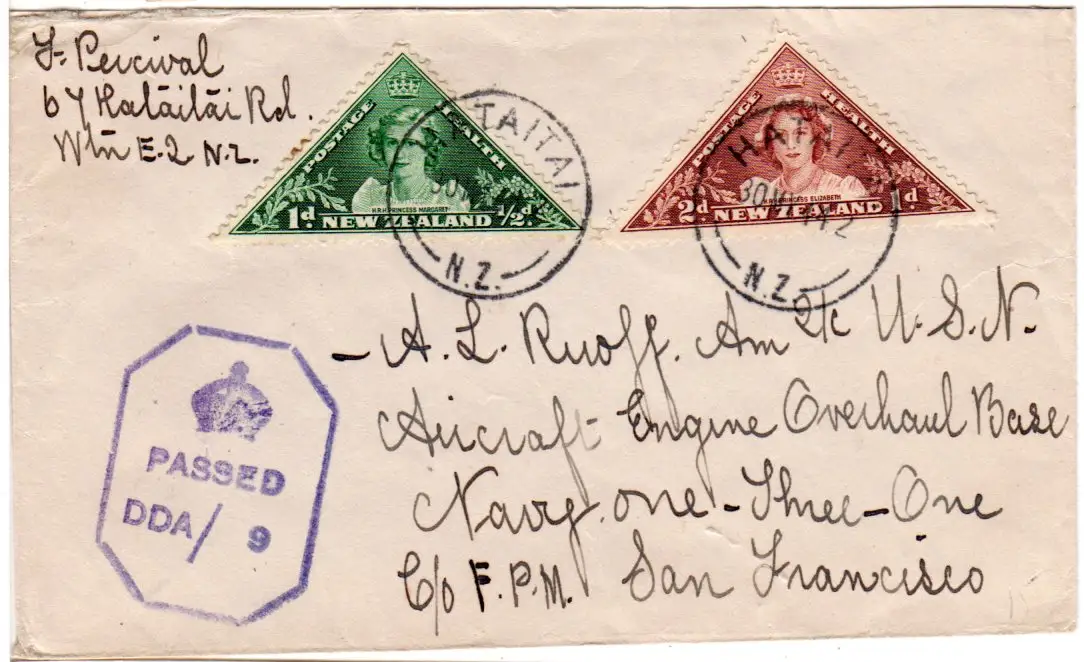 F. Percival
67 Hataitai Rd.
Wtn E.2. N.Z.
POSTAGE HEALTH
H.R.H. PRINCESS MARGARET
1d NEW ZEALAND 1/2d
POSTAGE HEALTH
H.R.H. PRINCESS ELIZABETH
2d NEW ZEALAND 1d
HATAITAI
N.Z.
HATAI
N.Z.
A. L. Ruoff. Am 2/c U.S.N.
Aircraft Engine Overhaul Base
Navy. one-Three-One
C/o F.P.M. San Francisco
PASSED
DDA/ 9